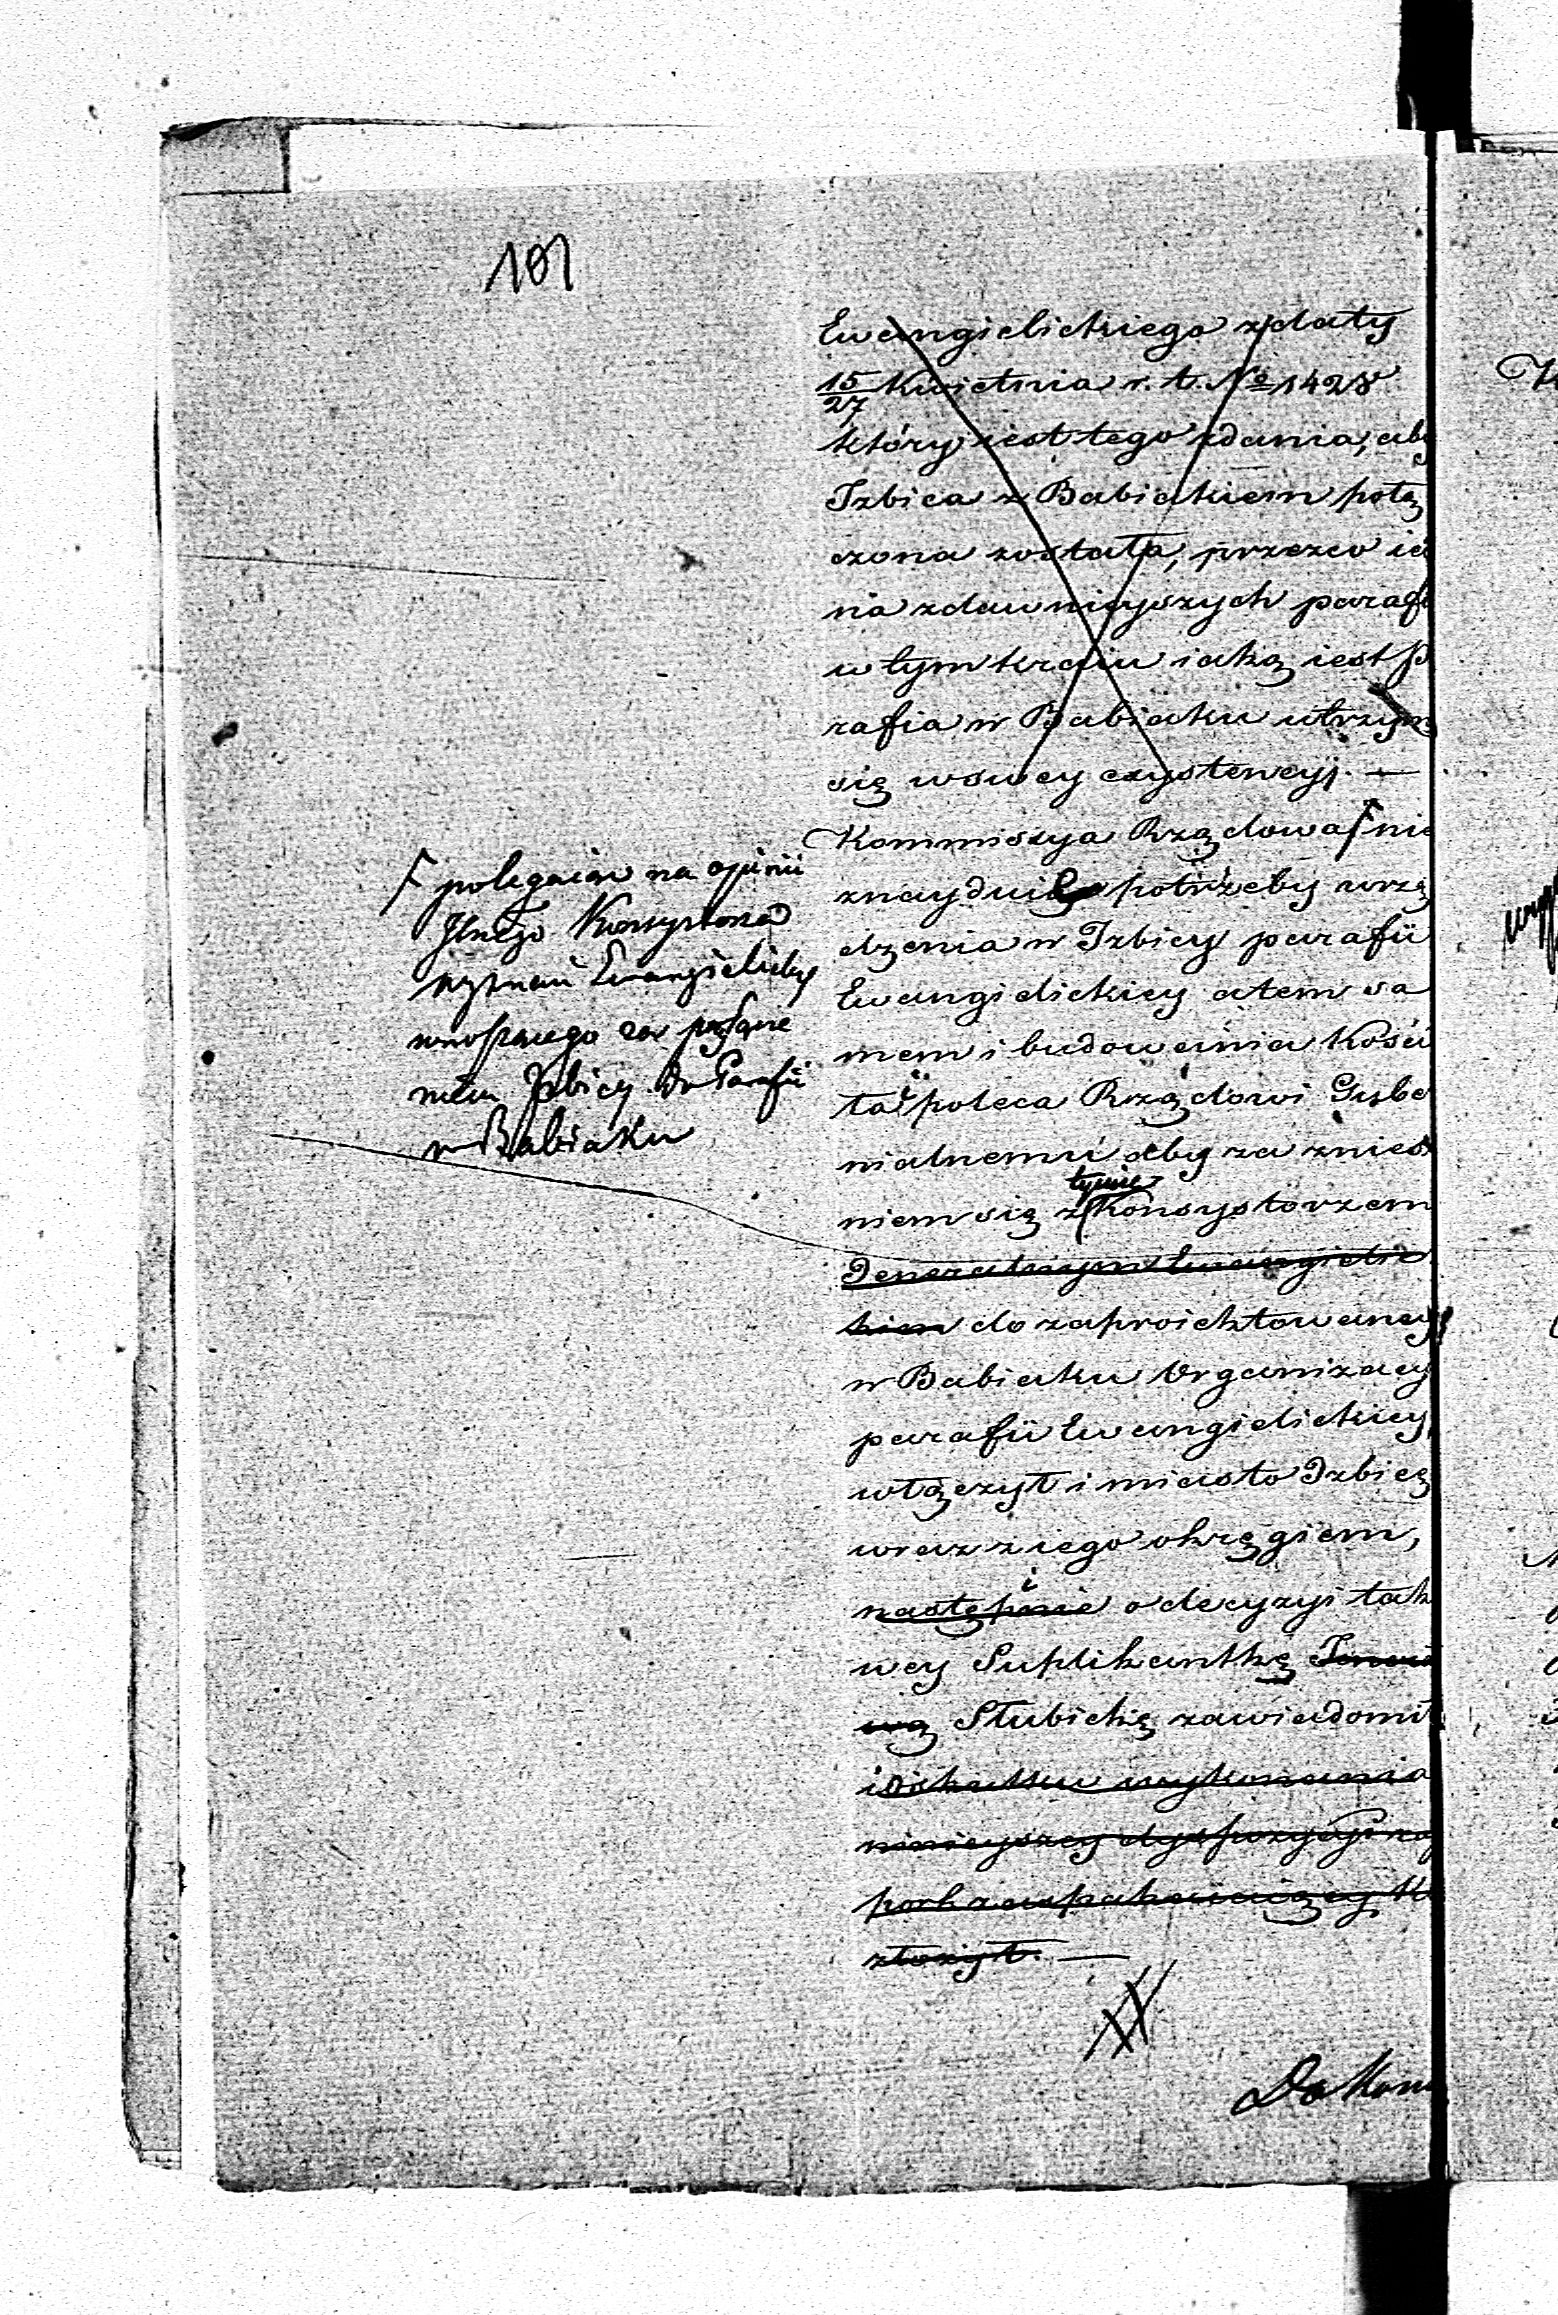 101
Ewangielickiego z daty
15/27 Kwietnia r. t. No 1428
który iest tego zdania, aby
Izbica z Babiakiem połą
czona została, przezco ie
na zdawnieyszych paraf
w tym kraiu iaką iest p
rafia w Babiaku utrzym
się w swey exystencyi. —
Kommissya Rządowa Γ nie
znayduie potrzeby urzą
dzenia w Izbicy parafii
Ewangielickiey a tem sa
mem i budowania Kośc
ła i poleca Rządowi Gube
nialnemu aby za znies
tymże
niem się z Konsystorzem
Generalnym Ewangielic
kiem do zaproiektowaney
w Babiaku Organizacy
parafii Ewangielickiey
włączył i miasto Izbicę
wraz z iego okręgiem,
i
następnie o decyzyi tak
wey Suplikantkę
wą Słubickę zawiadomił
i o skutku wykonania
ninieyszey dyspozycyi ra
port zaspakaiaiący K
złożył. —
Do Kom
Γ polegaiąc na opinii
Glnego Konsystorza
wyznań Ewangielickich
wnoszącego za przyłącze
niem Izbicy do Parafii
w Babiaku